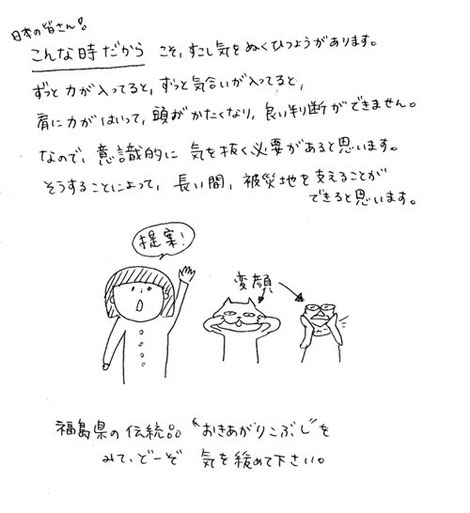 日本の皆さん！
こんな時だから こそ、すこし気をぬくひつようがあります。
ずっと力が入ってると、ずっと気合いが入ってると、
肩に力がはいって、頭がかたくなり、良い判断ができません。
なので、意識的に 気を抜く必要があると思います。
そうすることによって、長い間、被災地を支えることが
できると思います。
提案！
変顔
福島県の伝統品 “おきあがりこぶし”を
みて、どーぞ 気を緩めて下さい。